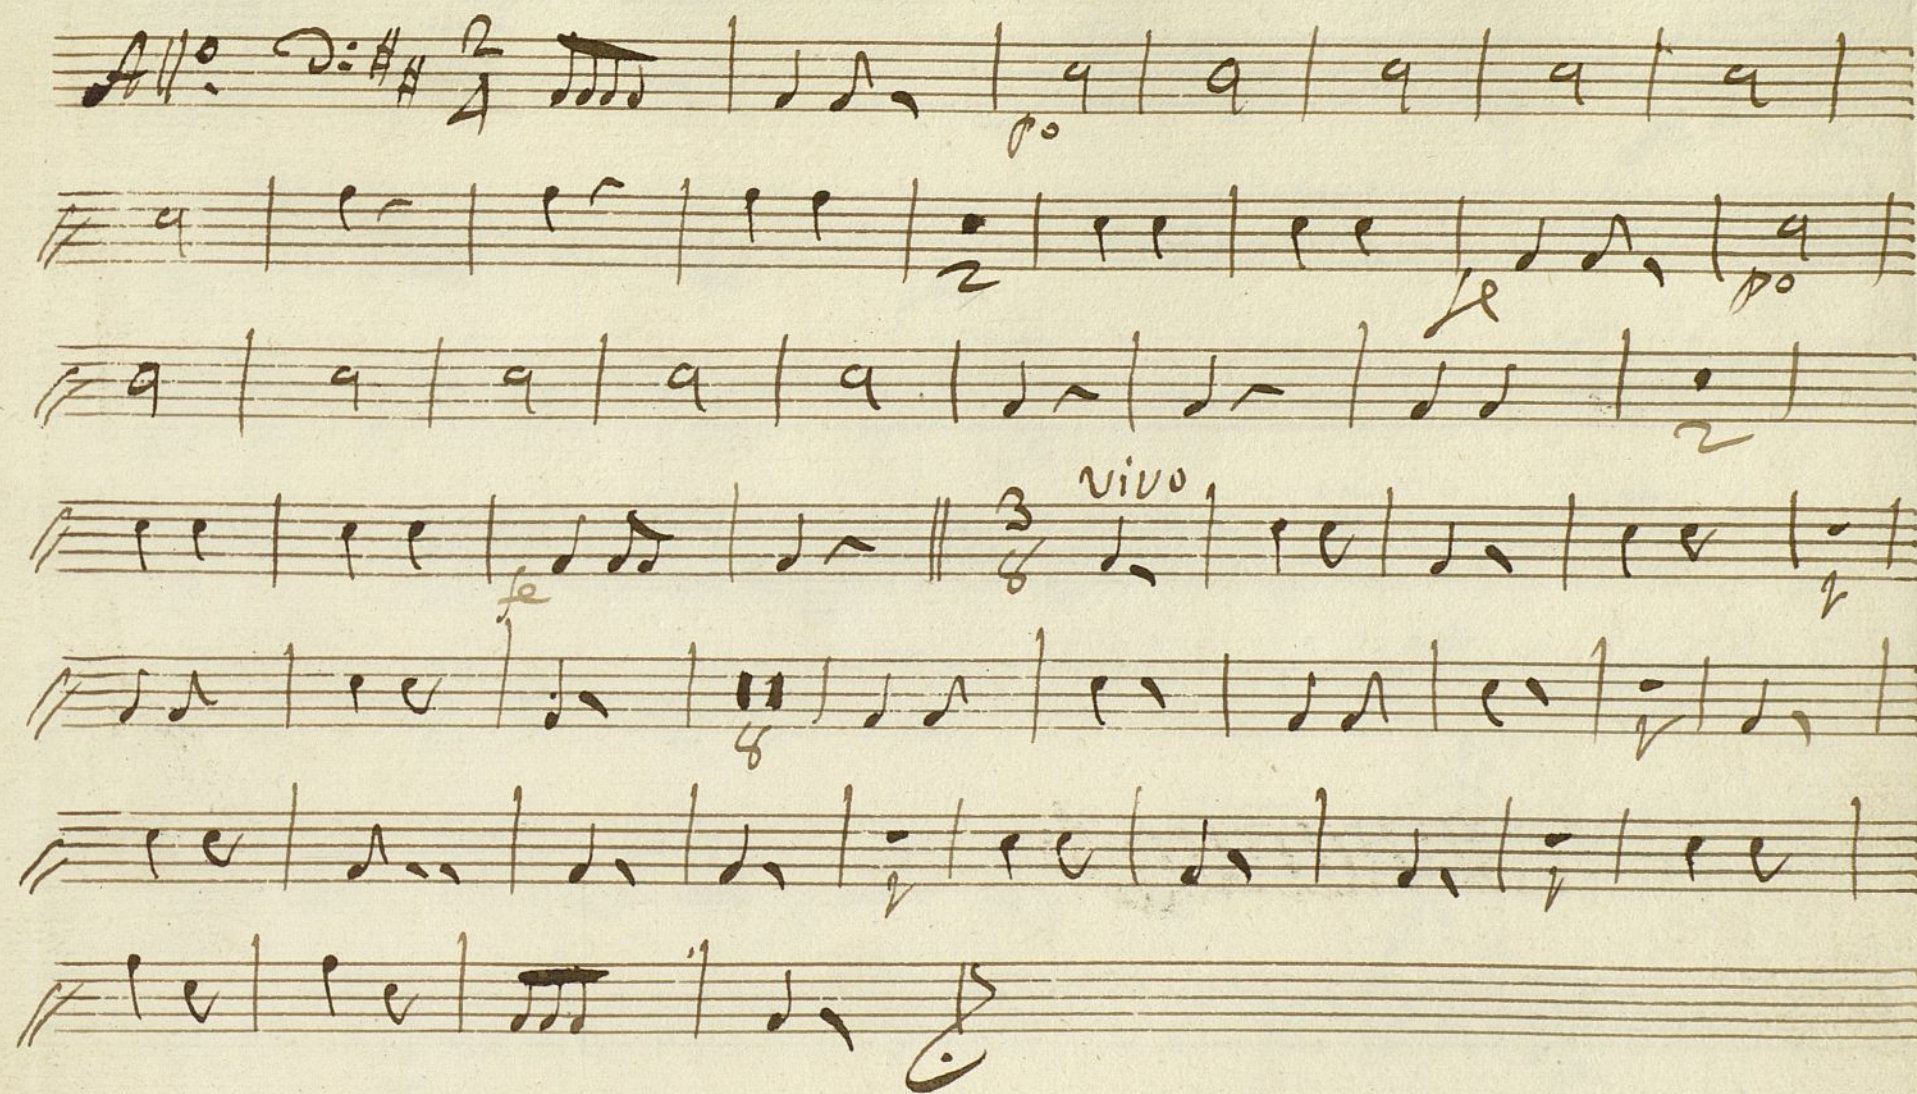 All:o 2 4
po
2 fe po
2
vivo
3 8
fe 1
8 1
1 1